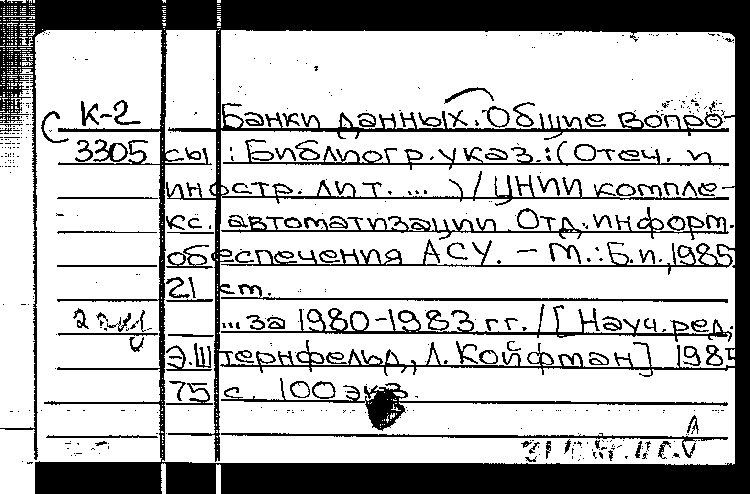 С К-2 Банки данных. Общие вопро-
3305 сы : Библиогр. указ. : (Отеч. и
иностр. лит. ... ) / ЦНИИ компле-
кс. автоматизации. Отд. информ.
обеспечения АСУ. – М. : Б.и., 1985
21 cm.
2 экз ... за 1980-1983 гг. / [ Науч. ред.
Э. Штернфельд, Л. Койфман ] 1985
75 с. 100 экз.